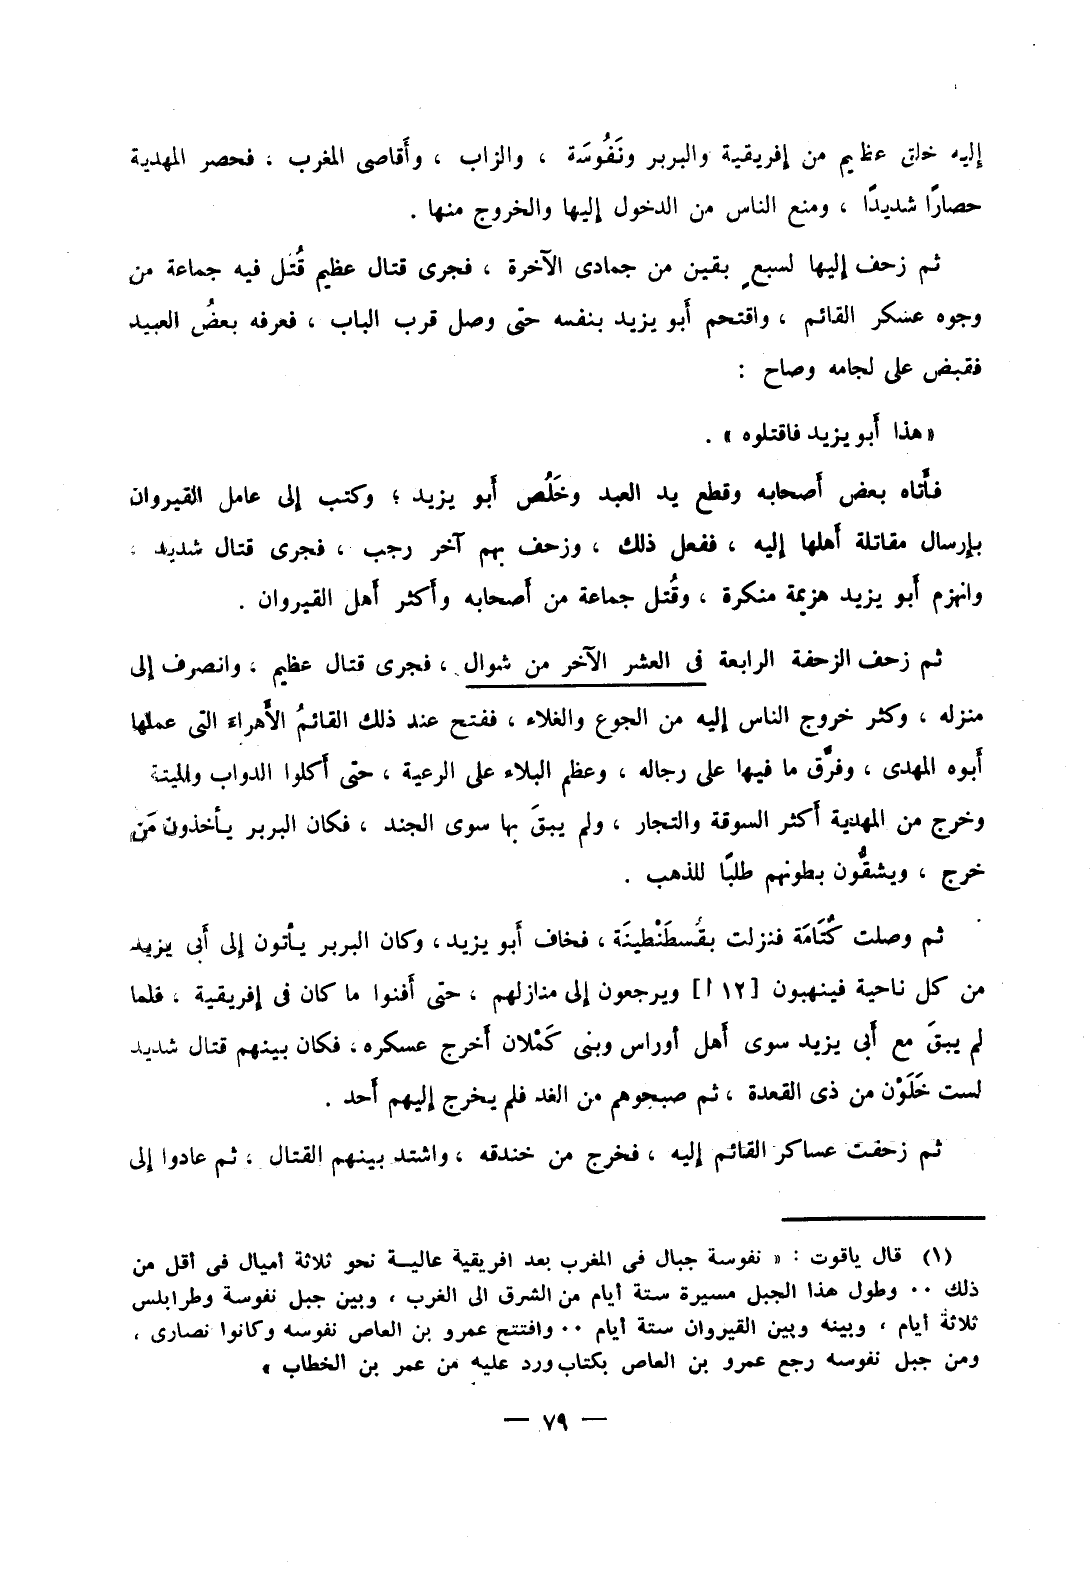 إليه خلق عظيم من إفريقية والبربر ونَفُوسَة ، والزاب ، وأَقاصى المغرب ، فحصر المهدية
حصارًا شديدًا ، ومنع الناس من الدخول إليها والخروج منها .
ثم زحف إليها لسبع بقين من جمادى الآخرة ، فجرى قتال عظيم قُتل فيه جماعة من
وجوه عسكر القائم ، واقتحم أَبو يزيد بنفسه حتى وصل قرب الباب ، فعرفه بعضُ العبيد
فقبض على لجامه وصاح :
« هذا أَبو يزيد فاقتلوه » .
فأَتاه بعض أَصحابه وقطع يد العبد وخَلُص أَبو يزيد ؛ وكتب إلى عامل القيروان
بإرسال مقاتلة أَهلها إليه ، ففعل ذلك ، وزحف بهم آخر رجب ، فجرى قتال شديد ،
وانهزم أَبو يزيد هزيمة منكرة ، وقُتل جماعة من أَصحابه وأَكثر أَهل القيروان .
ثم زحف الزحفة الرابعة فى العشر الآخر من شوال ، فجرى قتال عظيم ، وانصرف إلى
منزله ، وكثر خروج الناس إليه من الجوع والغلاء ، ففتح عند ذلك القائمُ الأَهراء التى عملها
أَبوه المهدى ، وفرَّق ما فيها على رجاله ، وعظم البلاء على الرعية ، حتى أَكلوا الدواب والميتة
وخرج من المهدية أَكثر السوقة والتجار ، ولم يبقَ بها سوى الجند ، فكان البربر يأخذون مَن
خرج ، ويشقُّون بطونهم طلبًا للذهب .
ثم وصلت كُتَامَة فنزلت بقُسطَنْطِينَة ، فخاف أَبو يزيد ، وكان البربر يأتون إلى أَبى يزيد
من كل ناحية فينهبون [ ١٢ ا ] ويرجعون إلى منازلهم ، حتى أَفنوا ما كان فى إفريقية ، فلما
لم يبقَ مع أَبى يزيد سوى أَهل أوراس وبنى كَمْلان أَخرج عسكره ، فكان بينهم قتال شديد
لست خَلَوْن من ذى القعدة ، ثم صبحوهم من الغد فلم يخرج إليهم أَحد .
ثم زحفت عساكر القائم إليه ، فخرج من خندقه ، واشتد بينهم القتال ، ثم عادوا إلى
(١) قال ياقوت : « نفوسة جبال فى المغرب بعد افريقية عاليــة نحو ثلاثة أميال فى أقل من
ذلك ٠٠ وطول هذا الجبل مسيرة ستة أيام من الشرق الى الغرب ، وبين جبل نفوسة وطرابلس
ثلاثة أيام ، وبينه وبين القيروان ستة أيام ٠٠ وافتتح عمرو بن العاص نفوسه وكانوا نصارى ،
ومن جبل نفوسه رجع عمرو بن العاص بكتاب ورد عليه من عمر بن الخطاب »
— ٧٩ —